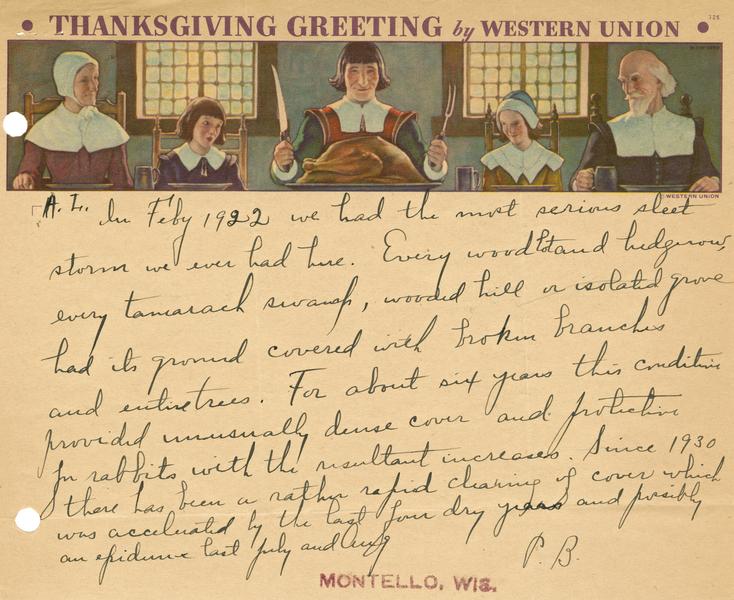 THANKSGIVING GREETING by WESTERN UNION
325
© WESTERN UNION
A. L. In Feby 1922 we had the most serious sleet
storm we ever had here. Every woodlot and hedgerow,
every tamarack swamp, wooded hill or isolated grove
had its ground covered with broken branches
and entire trees. For about six years this condition
provided unusually dense cover and protection
for rabbits with the resultant increases. Since 1930
there has been a rather rapid clearing of cover which
was accelerated by the last four dry years and possibly
an epidemic last July and Aug
P. B.
MONTELLO, WIS.